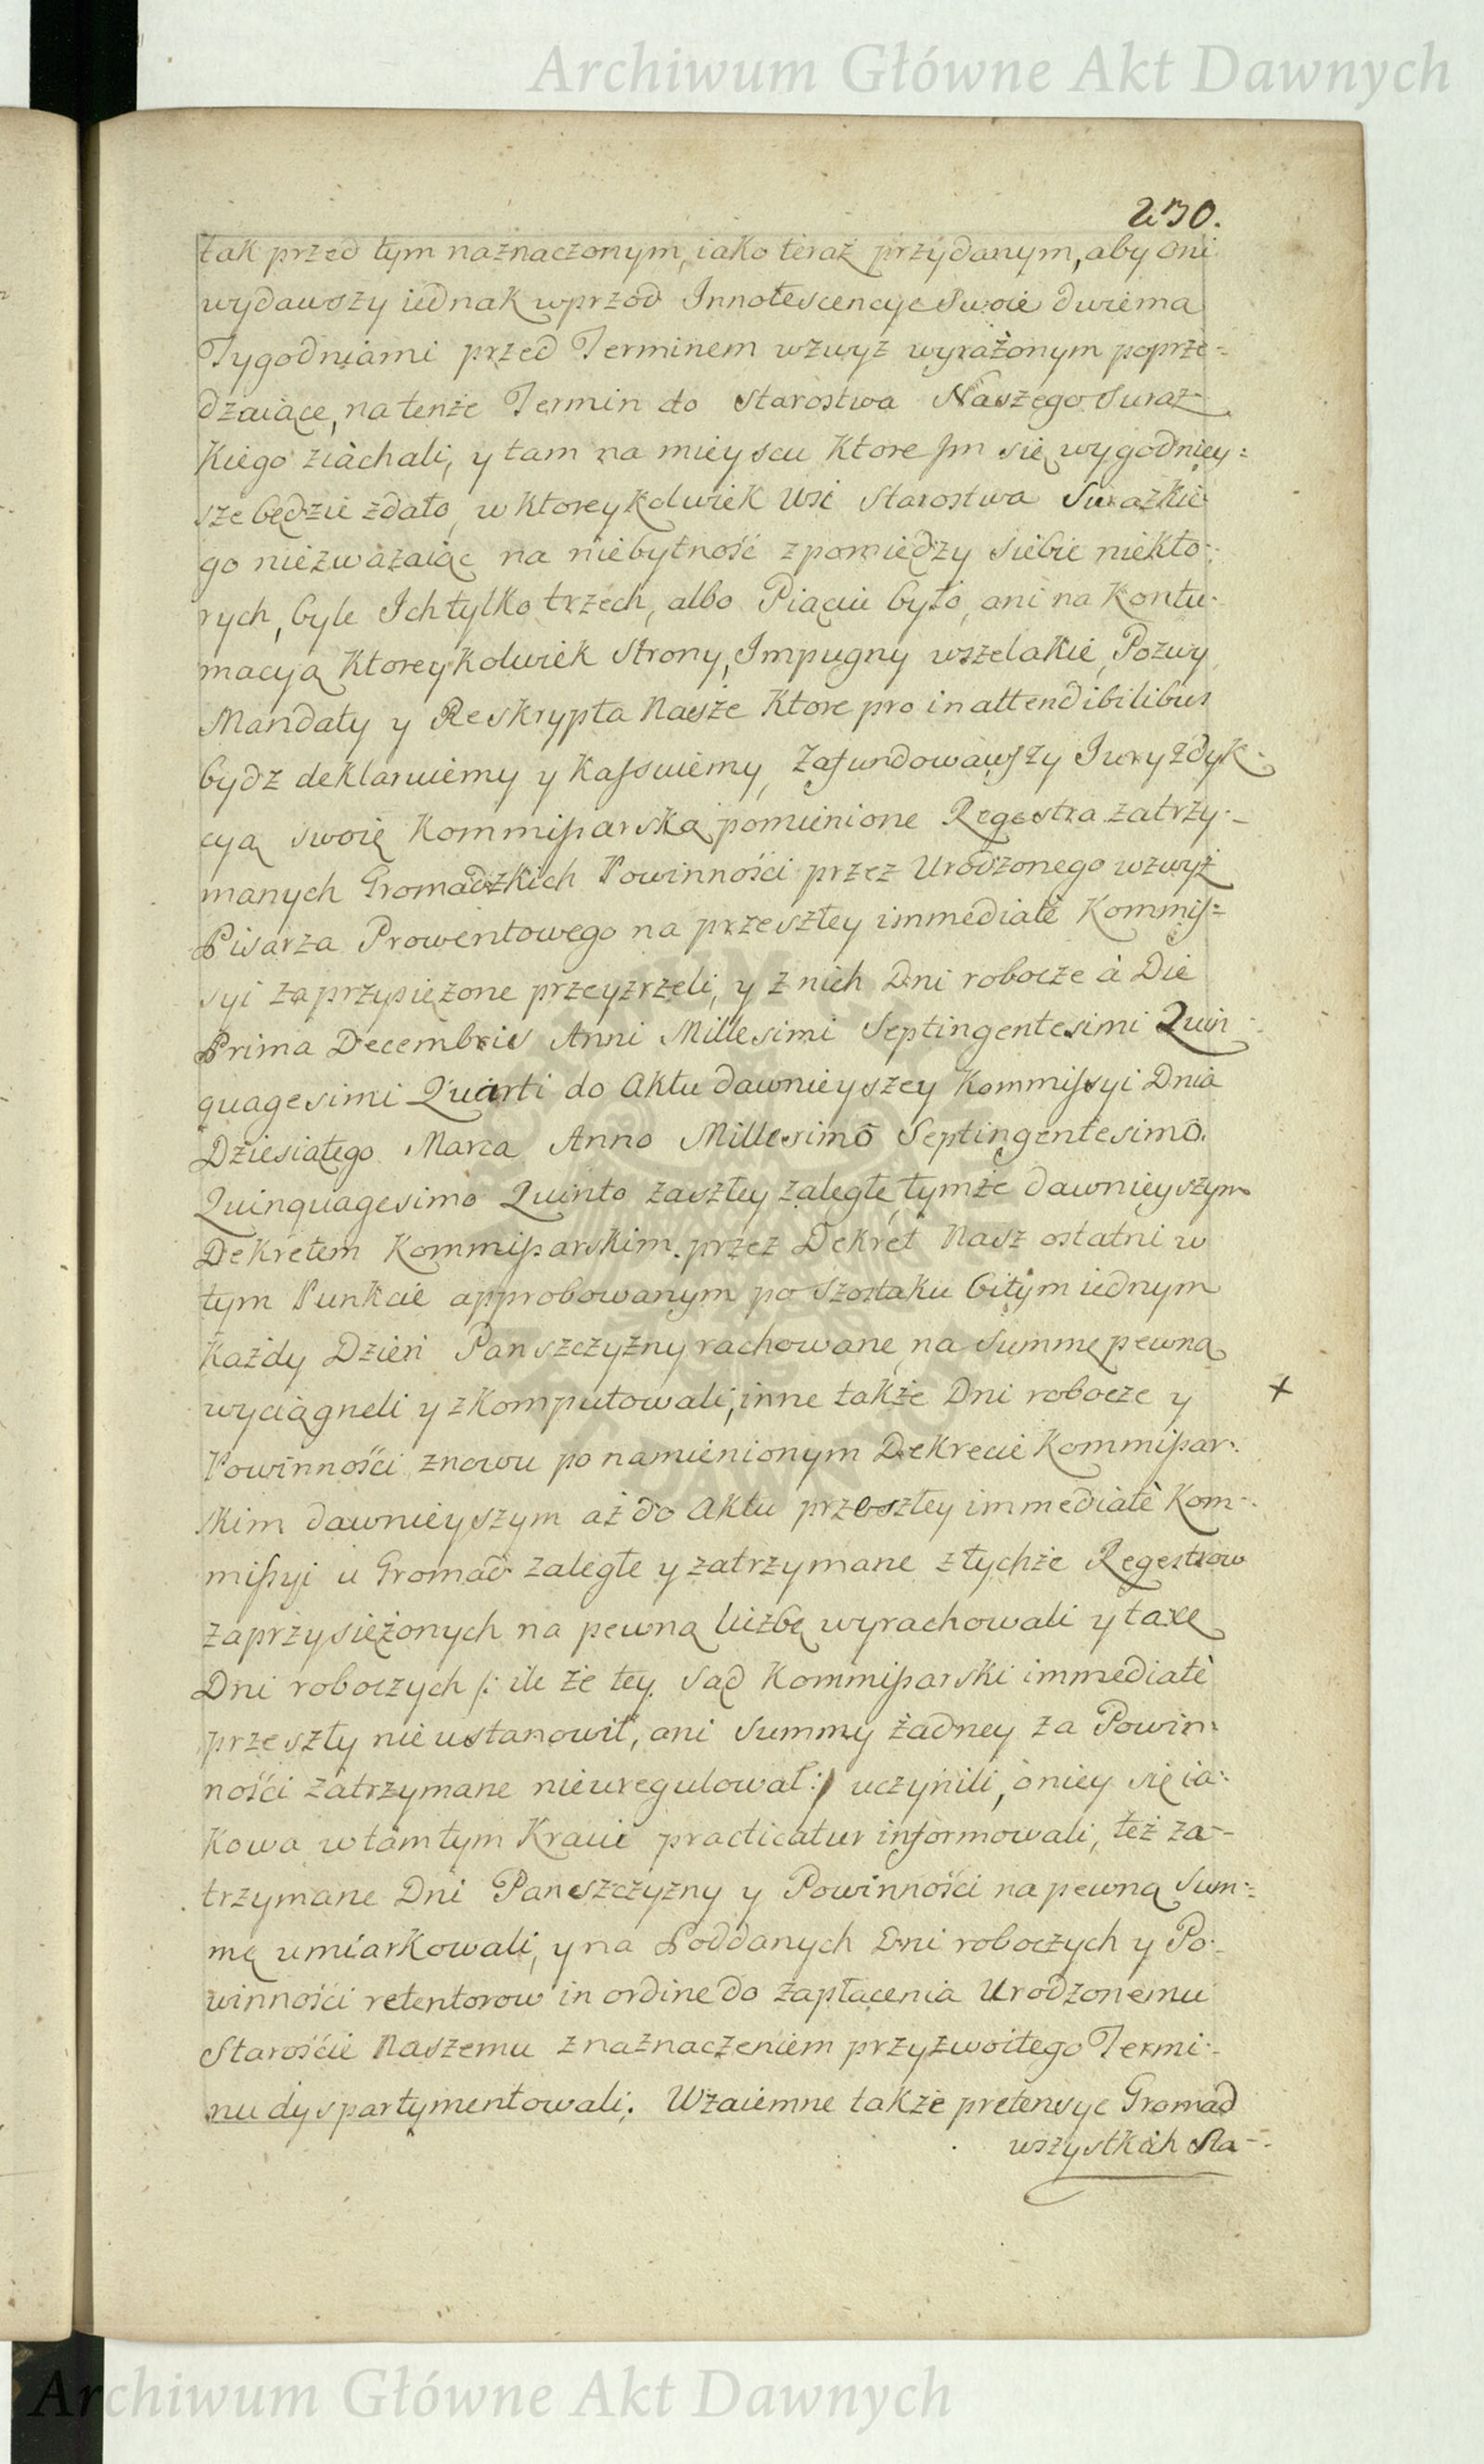 Archiwum Główne Akt Dawnych
230.
tak przed tym naznaczonym, iako teraz przydanym, aby oni
wydawszy iednak wprzod Innotescencye swoie dwiema
Tygodniami przed Terminem wzwyż wyrażonym poprze=
dzaiące, na tenże Termin do Starostwa Naszego Suraz
kiego ziachali, y tam na mieyscu ktore Im się wygodniey=
sze będzie zdało, w ktoreykolwiek Wsi Starostwa Surazkie
go nieżwazaiąc na niebytność zpomiędzy siebie niekto=
rych, byle Ich tylko trzech, albo Piąciu było, ani na Kontu=
macyą ktoreykolwiek Strony, Impugny wszelakie, Pozwy
Mandaty y Reskrypta Nasze ktore pro inattendibilibus
bydz deklaruiemy y kassuiemy, zafundowawszy Iuryzdyk=
cyą swoię Kommissarską pomienione Regestra zatrzy=
manych Gromadzkich Powinności przez Urodzonego wzwyż
Pisarza Prowentowego na przeszłey immediatè Kommis=
syi zaprzysiężone przeyzrzeli, y z nich Dni robocze à Die
Prima Decembris Anni Millesimi Septingentesimi Quin=
quagesimi Quarti do Aktu dawnieyszey Kommissyi Dnia
Dziesiątego Marca Anno Millesimō Septingentesimō
Quinquagesimo Quinto zaszłey zaległe, tymże dawnieyszym
Dekretem Kommissarskim przez Dekret Nasz ostatni w
tym Punkcie approbowanym po szostaku bitym iednym
każdy Dzień Panszczyzny rachowane, na Summę pewną
wyciągneli y zkomputowali, inne także Dni robocze y
x
Powinności znowu po namienionym Dekrecie Kommissar=
skim dawnieyszym aż do Aktu przeszłey immediatè Kom=
missyi u Gromad zaległe y zatrzymane z tychże Regestrow
zaprzysiężonych na pewną liczbę wyrachowali y taxę
Dni roboczych /: ile że tey Sąd Kommissarski immediatè
przeszły nie ustanowił, ani Summy żadney za Powin=
ności zatrzymane nieuregulował :/ uczynili, o niey się ia=
kowa w tamtym Kraiu practicatur informowali, też za=
trzymane Dni Panszczyzny y Powinności na pewną Sum=
mę umiarkowali, y na Poddanych Dni roboczych y Po=
winności retentorow in ordine do zapłacenia Urodzonemu
Starościе Naszemu z naznaczeniem przyzwoitego Termi=
nu dyspartymentowali. Wzaiemne także pretensye Gromad
wszystkich Sta=
Archiwum Główne Akt Dawnych